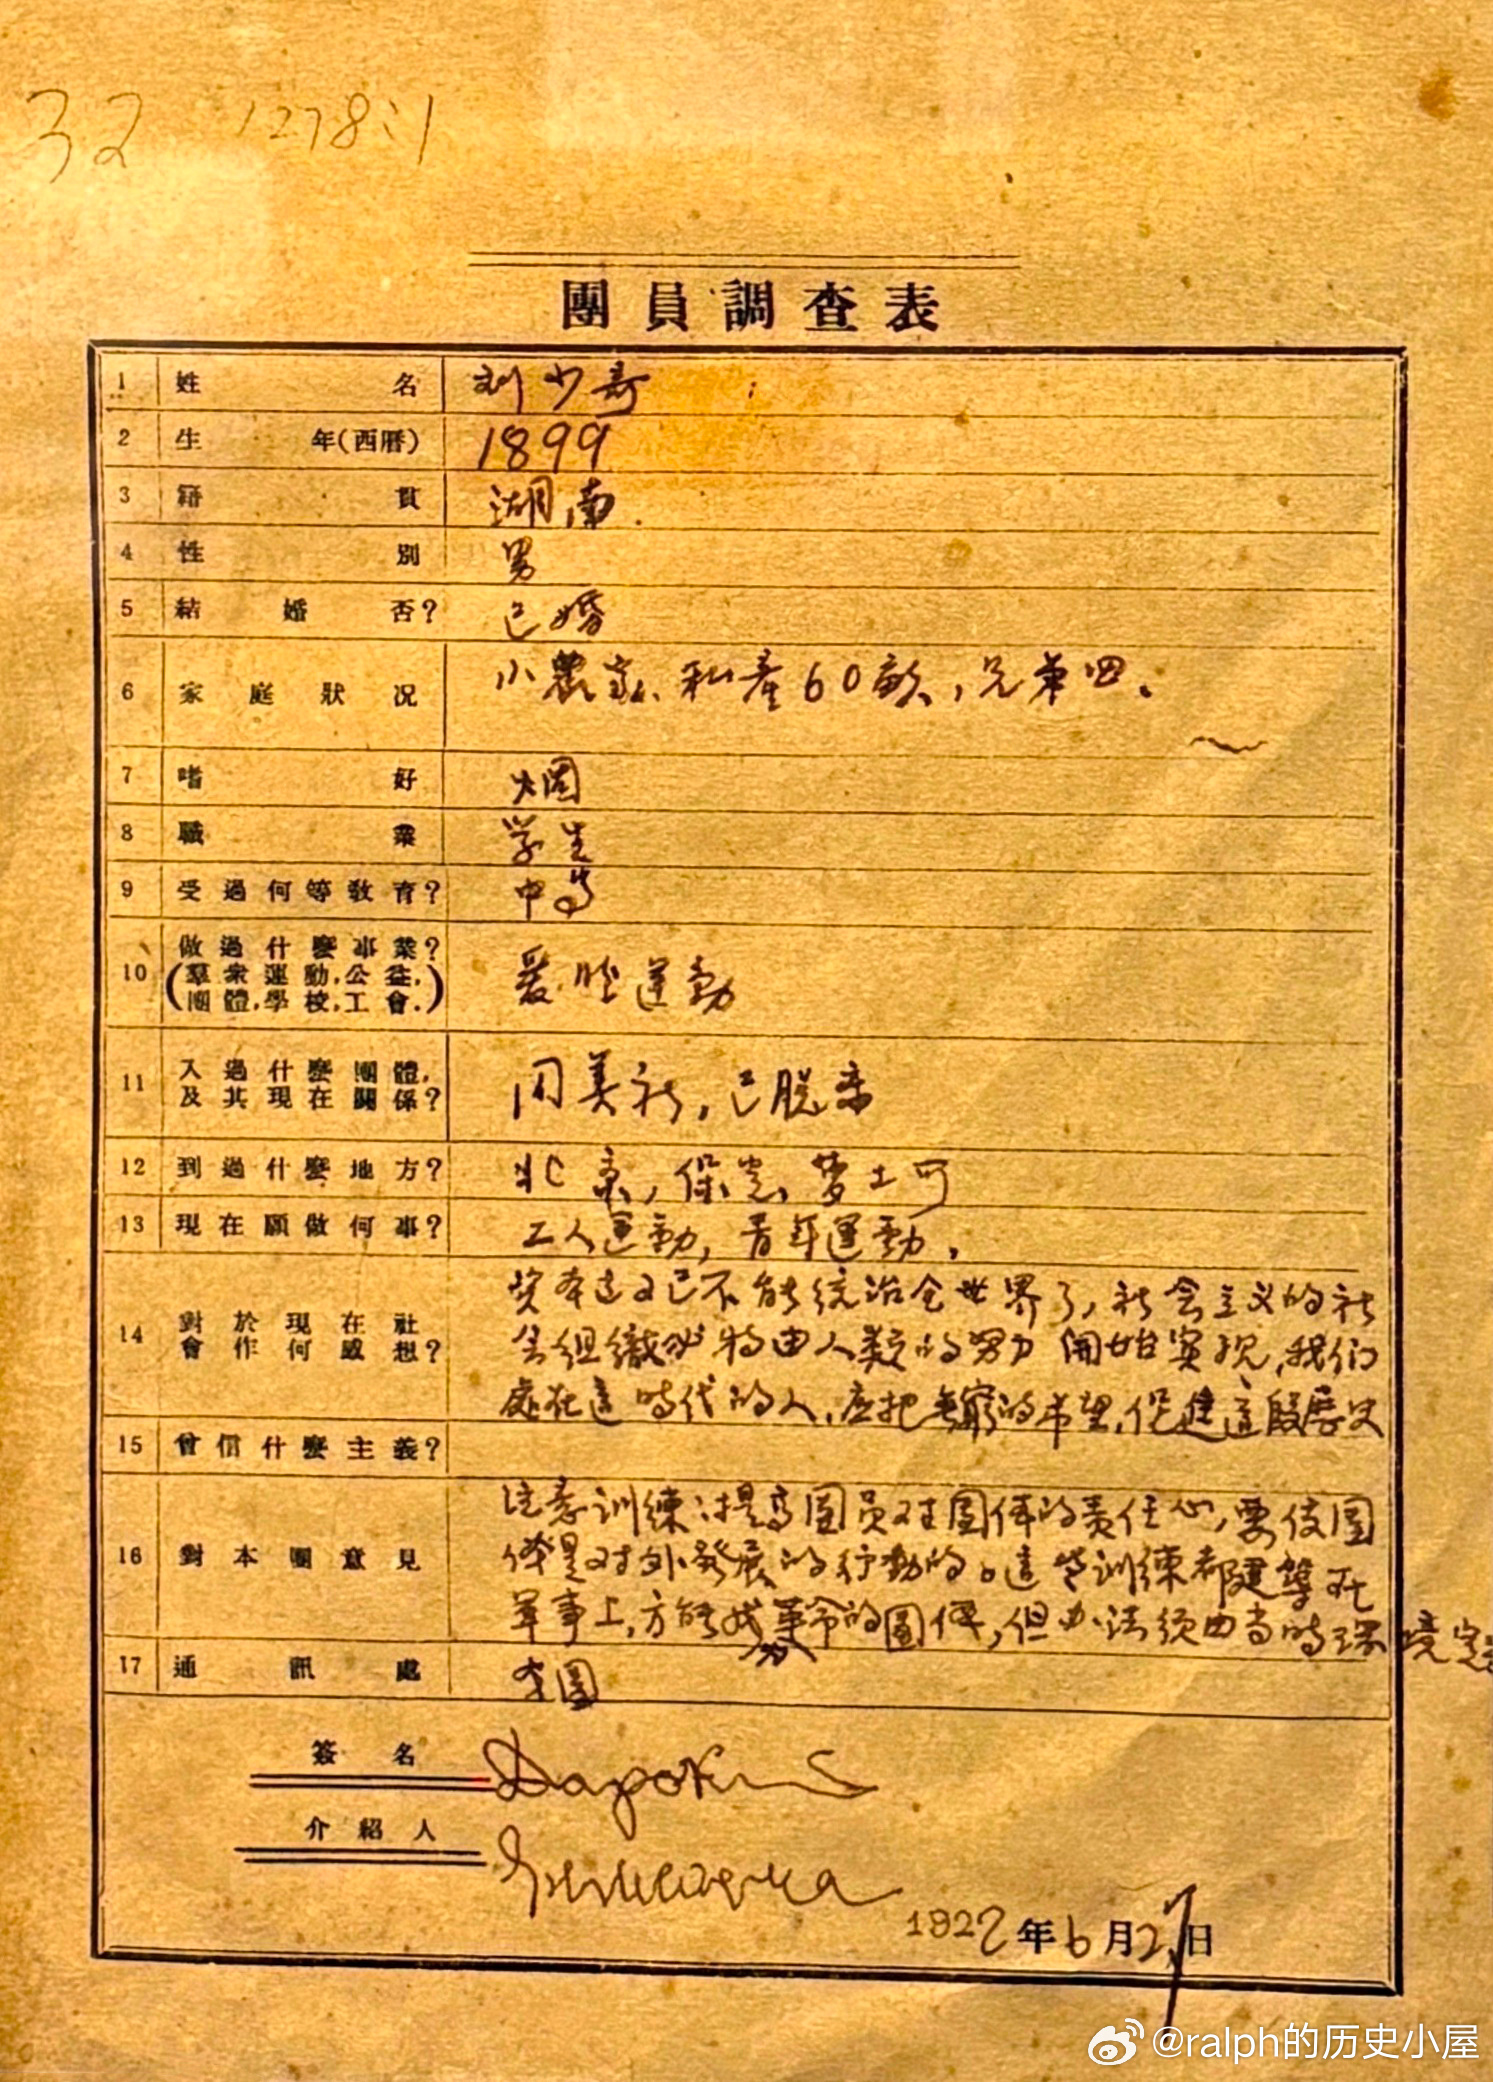 32 1278:1
團員調查表
1 姓名 刘少奇
2 生年(西曆) 1899
3 籍貫 湖南.
4 性別 男
5 結婚否? 已婚
6 家庭狀況 小農家、私產60畝,兄弟四。
7 嗜好 烟
8 職業 学生
9 受過何等教育? 中等
10 做過什麼事業?
(羣衆運動,公益,
團體,學校,工會.) 愛国運動
11 入過什麼團體,
及其現在關係? 互美社,已脱离
12 到過什麼地方? 北京,保定、莫士可
13 現在願做何事? 工人運動,青年運動。
14 對於現在社
會作何感想?
資本主义已不能統治全世界了,社会主义的社
会組織必将由人类的努力開始实现,我们
處在這時代的人,应把無窮的希望,促進這段歷史
15 曾信什麼主義?
16 對本團意見
注意訓練:提高團员对團体的责任心,要使團
体是对外發展的行動的。這等訓練都建築在
軍事上,方能成革命的團体,但办法须由当时环境定
17 通訊處 本團
簽名
介紹人
1922年6月27日
@ralph的历史小屋